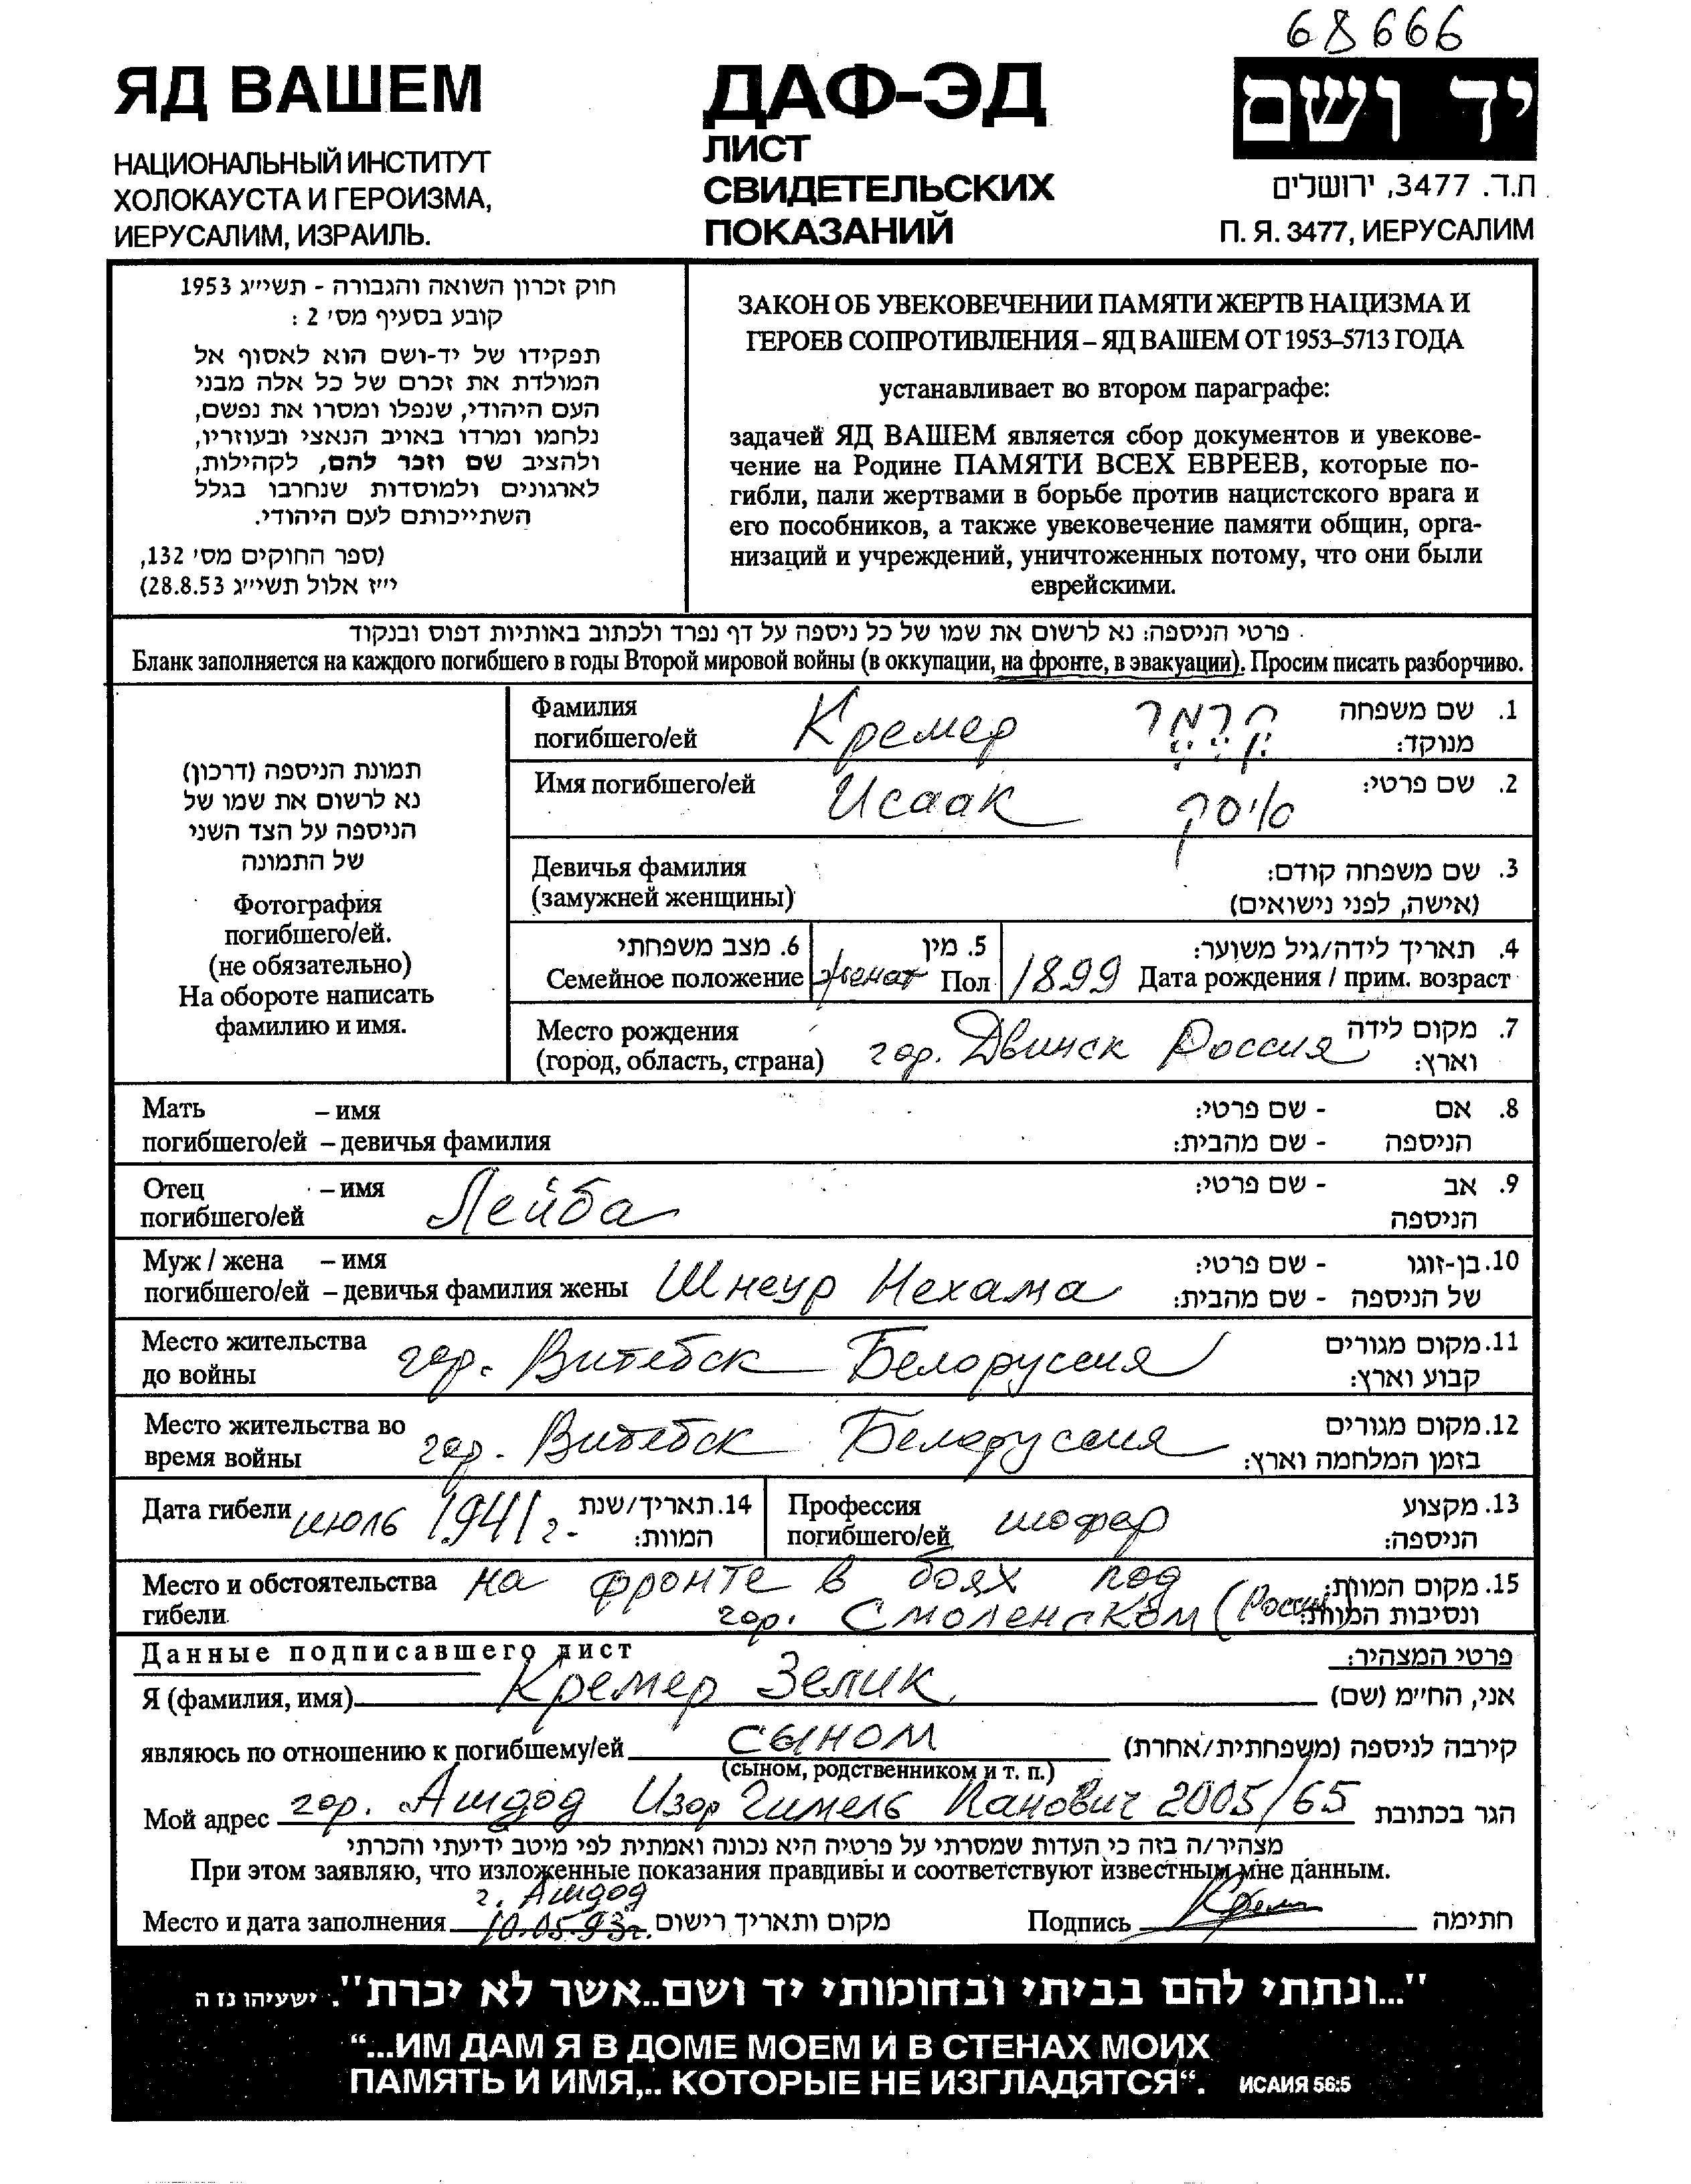 68666
ЯД ВАШЕМ
НАЦИОНАЛЬНЫЙ ИНСТИТУТ
ХОЛОКАУСТА И ГЕРОИЗМА,
ИЕРУСАЛИМ, ИЗРАИЛЬ.
ДАФ-ЭД
ЛИСТ
СВИДЕТЕЛЬСКИХ
ПОКАЗАНИЙ
יד ושם
ת.ד. 3477, ירושלים
П. Я. 3477, ИЕРУСАЛИМ
חוק זכרון השואה והגבורה - תשי״ג 1953
קובע בסעיף מס׳ 2 :
תפקידו של יד-ושם הוא לאסוף אל
המולדת את זכרם של כל אלה מבני
העם היהודי, שנפלו ומסרו את נפשם,
נלחמו ומרדו באויב הנאצי ובעוזריו,
ולהציב שם וזכר להם, לקהילות,
לארגונים ולמוסדות שנחרבו בגלל
השתייכותם לעם היהודי.
(ספר החוקים מס׳ 132,
י״ז אלול תשי״ג 28.8.53)
ЗАКОН ОБ УВЕКОВЕЧЕНИИ ПАМЯТИ ЖЕРТВ НАЦИЗМА И
ГЕРОЕВ СОПРОТИВЛЕНИЯ – ЯД ВАШЕМ ОТ 1953–5713 ГОДА
устанавливает во втором параграфе:
задачей ЯД ВАШЕМ является сбор документов и увекове-
чение на Родине ПАМЯТИ ВСЕХ ЕВРЕЕВ, которые по-
гибли, пали жертвами в борьбе против нацистского врага и
его пособников, а также увековечение памяти общин, орга-
низаций и учреждений, уничтоженных потому, что они были
еврейскими.
פרטי הניספה: נא לרשום את שמו של כל ניספה על דף נפרד ולכתוב באותיות דפוס ובנקוד
Бланк заполняется на каждого погибшего в годы Второй мировой войны (в оккупации, на фронте, в эвакуации). Просим писать разборчиво.
תמונת הניספה (דרכון)
נא לרשום את שמו של
הניספה על הצד השני
של התמונה
Фотография
погибшего/ей.
(не обязательно)
На обороте написать
фамилию и имя.
Фамилия Кремер קרמר 1. שם משפחה
погибшего/ей מנוקד:
Имя погибшего/ей Исаак איסק 2. שם פרטי:
Девичья фамилия 3. שם משפחה קודם:
(замужней женщины) (אישה, לפני נישואים)
6. מצב משפחתי 5. מין 4. תאריך לידה/גיל משוער:
Семейное положение женат Пол 1899 Дата рождения / прим. возраст
Место рождения 7. מקום לידה
(город, область, страна) гор. Двинск Россия וארץ:
Мать – имя 8. אם - שם פרטי:
погибшего/ей – девичья фамилия הניספה - שם מהבית:
Отец – имя Лейба 9. אב - שם פרטי:
погибшего/ей הניספה
Муж / жена – имя 10. בן-זוגו - שם פרטי:
погибшего/ей – девичья фамилия жены Шнеур Нехама של הניספה - שם מהבית:
Место жительства гор. Витебск Белоруссия 11. מקום מגורים
до войны קבוע וארץ:
Место жительства во гор. Витебск Белоруссия 12. מקום מגורים
время войны בזמן המלחמה וארץ:
Дата гибели июль 1941 г. 14. תאריך/שנת המוות:
Профессия погибшего/ей шофер 13. מקצוע הניספה:
Место и обстоятельства на фронте в боях под 15. מקום המוות:
гибели гор. Смоленском (Россия) ונסיבות המוות:
Данные подписавшего лист פרטי המצהיר:
Я (фамилия, имя) Кремер Зелик אני, החי״מ (שם)
являюсь по отношению к погибшему/ей сыном קירבה לניספה (משפחתית/אחרת)
(сыном, родственником и т. п.)
Мой адрес гор. Ашдод Изор Гимель Канович 2005/65 הגר בכתובת
מצהיר/ה בזה כי העדות שמסרתי על פרטיה היא נכונה ואמתית לפי מיטב ידיעתי והכרתי
При этом заявляю, что изложенные показания правдивы и соответствуют известным мне данным.
г. Ашдод
Место и дата заполнения 10.05.93г. מקום ותאריך רישום Подпись Крем חתימה
"...ונתתי להם בביתי ובחומותי יד ושם..אשר לא יכרת". ישעיהו נז ה
“...ИМ ДАМ Я В ДОМЕ МОЕМ И В СТЕНАХ МОИХ
ПАМЯТЬ И ИМЯ,.. КОТОРЫЕ НЕ ИЗГЛАДЯТСЯ“. ИСАИЯ 56:5